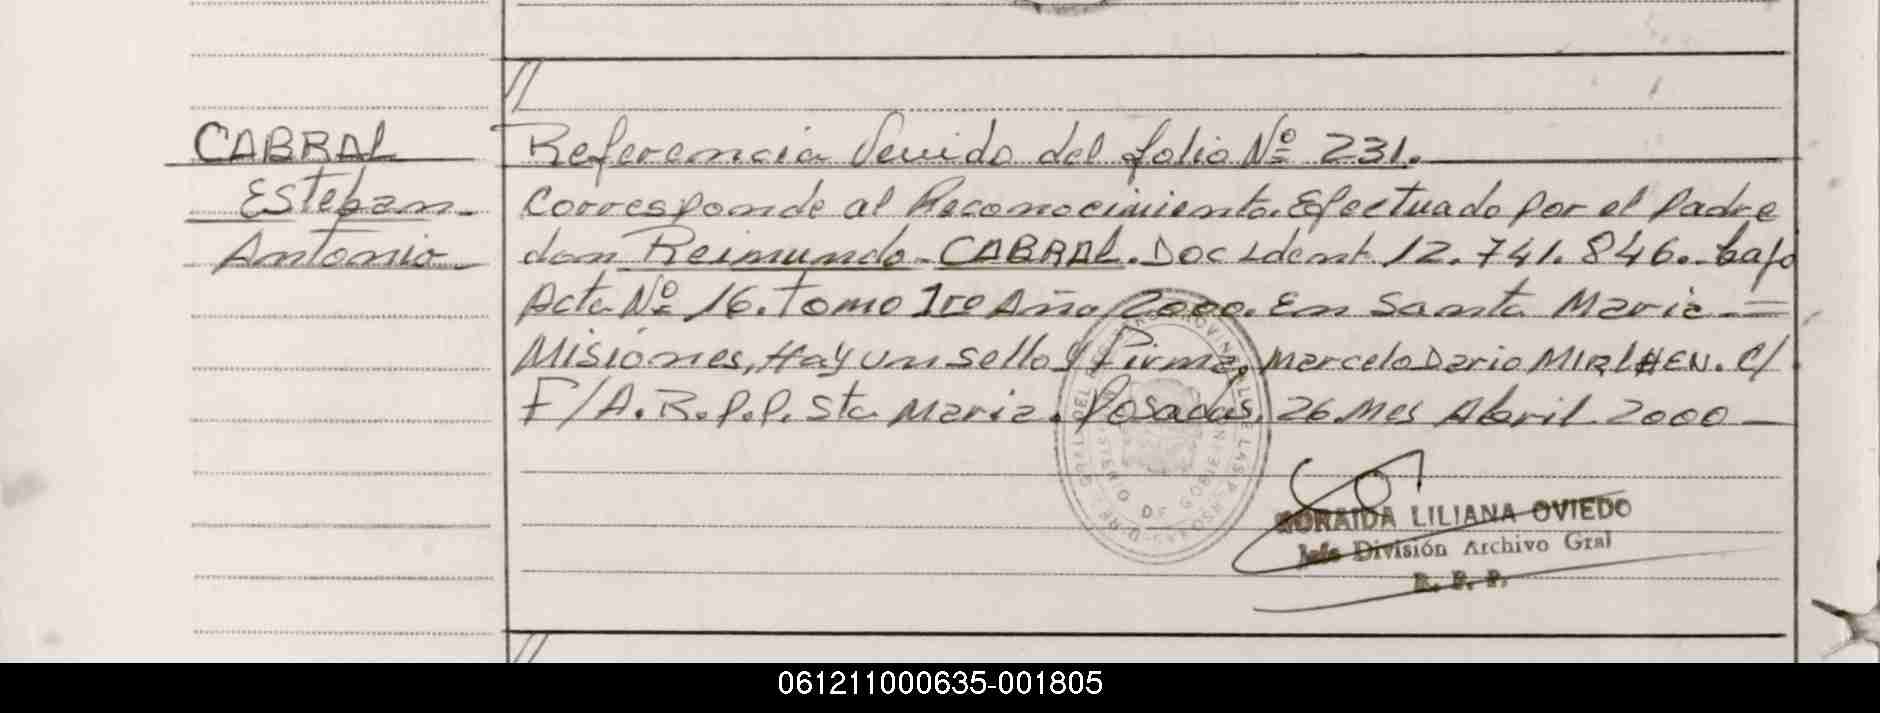 CABRAL
Esteban
Antonio
//
Referencia Venido del folio Nº 231.
Corresponde al Reconocimiento. Efectuado por el Padre
don Reimundo CABRAL. Doc Ident. 12.741.846. bajo
Acta Nº 16. Tomo 1ro Año 2000. En Santa Maria =
Misiones, Hay un sello y Firma, Marcelo Dario C/
F/A. R.P.P. Sta Maria. Posadas, 26 Mes Abril 2000
ZORAIDA LILIANA OVIEDO
Jefe División Archivo Gral
R. P. P.
//
061211000635-001805